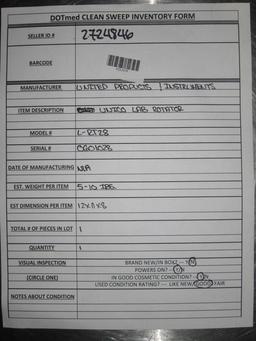 DOTmed CLEAN SWEEP INVENTORY FORM
SELLER ID # 2724846
BARCODE
MANUFACTURER UNITED PRODUCTS & INSTRUMENTS
ITEM DESCRIPTION UNICO LAB ROTATOR
MODEL # L-RT28
SERIAL # C601028
DATE OF MANUFACTURING N/A
EST. WEIGHT PER ITEM 5-10 LBS.
EST DIMENSION PER ITEM
TOTAL # OF PIECES IN LOT 1
QUANTITY 1
VISUAL INSPECTION BRAND NEW/IN BOX? --- Y/N
(CIRCLE ONE) POWERS ON? -- Y/N
IN GOOD COSMETIC CONDITION? -- Y/N
USED CONDITION RATING? --- LIKE NEW/GOOD/FAIR
NOTES ABOUT CONDITION